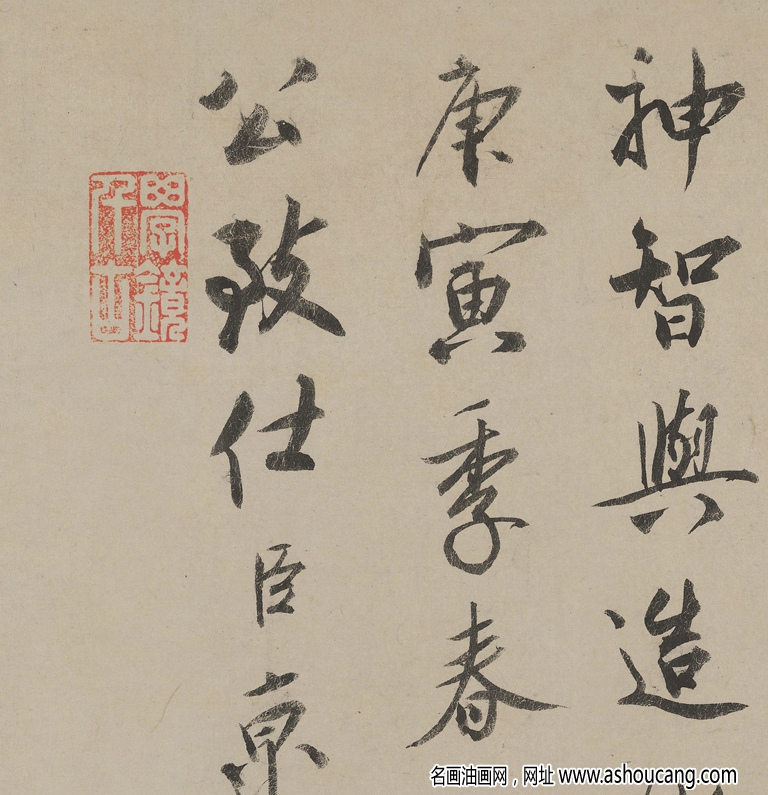 神智與造
庚寅季春
公致仕臣京
學鏡千古
名画油画网，网址 www.ashoucang.com